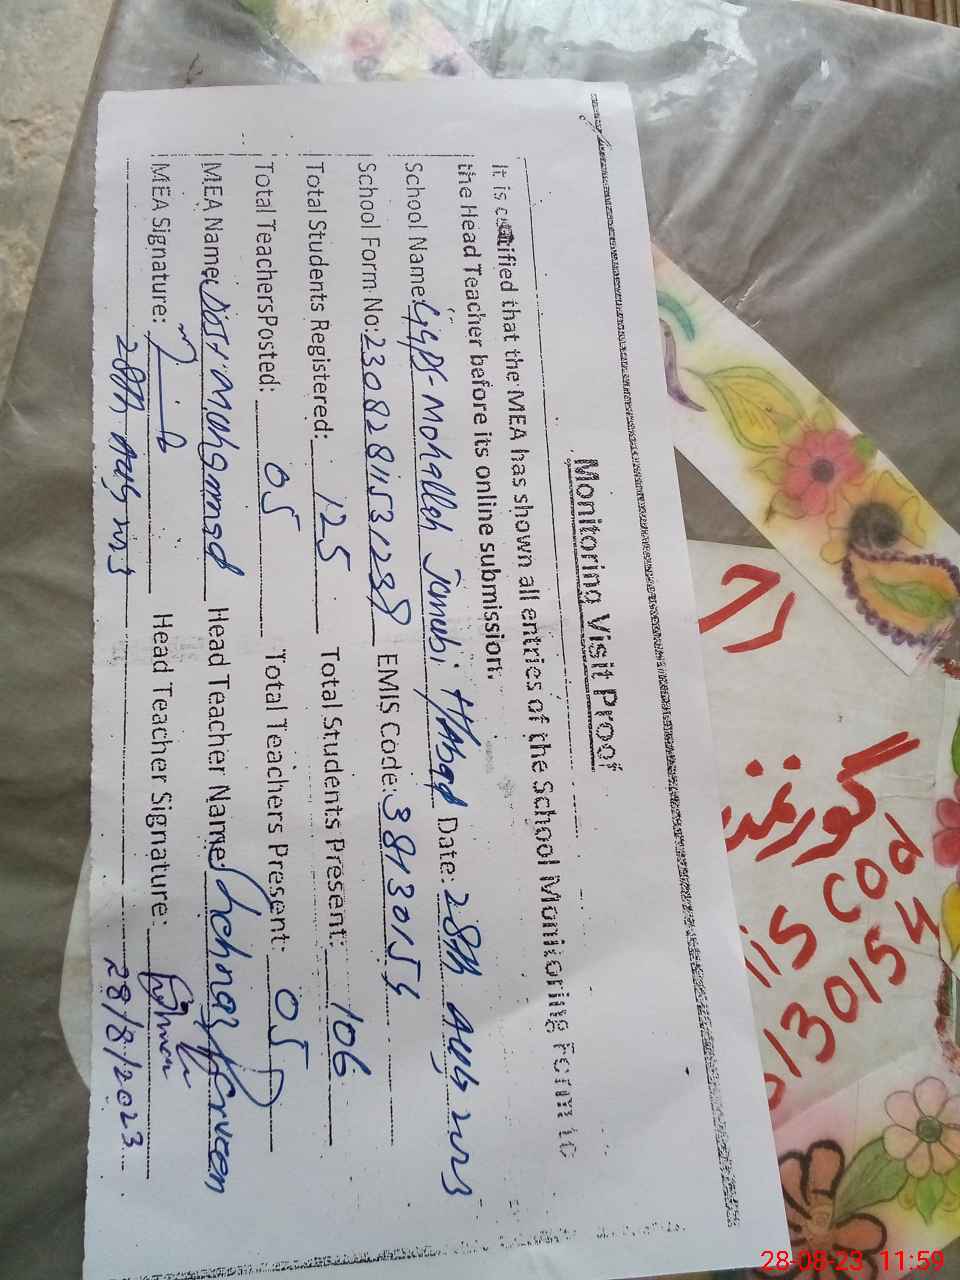 Monitoring Visit Proof
It is certified that the MEA has shown all entries of the School Monitoring Form to
the Head Teacher before its online submission.
School Name: GGPS-Mohallah Janubi Date: 28th Aug 2023
School Form No: EMIS Code: 38130154
Total Students Registered: 125 Total Students Present: 106
Total Teachers Posted: 05 Total Teachers Present: 05
MEA Name: Head Teacher Name:
MEA Signature: Head Teacher Signature:
28th Aug 2023 28/8/2023
گورنمنٹ
is cod
130154
28-08-23 11:59